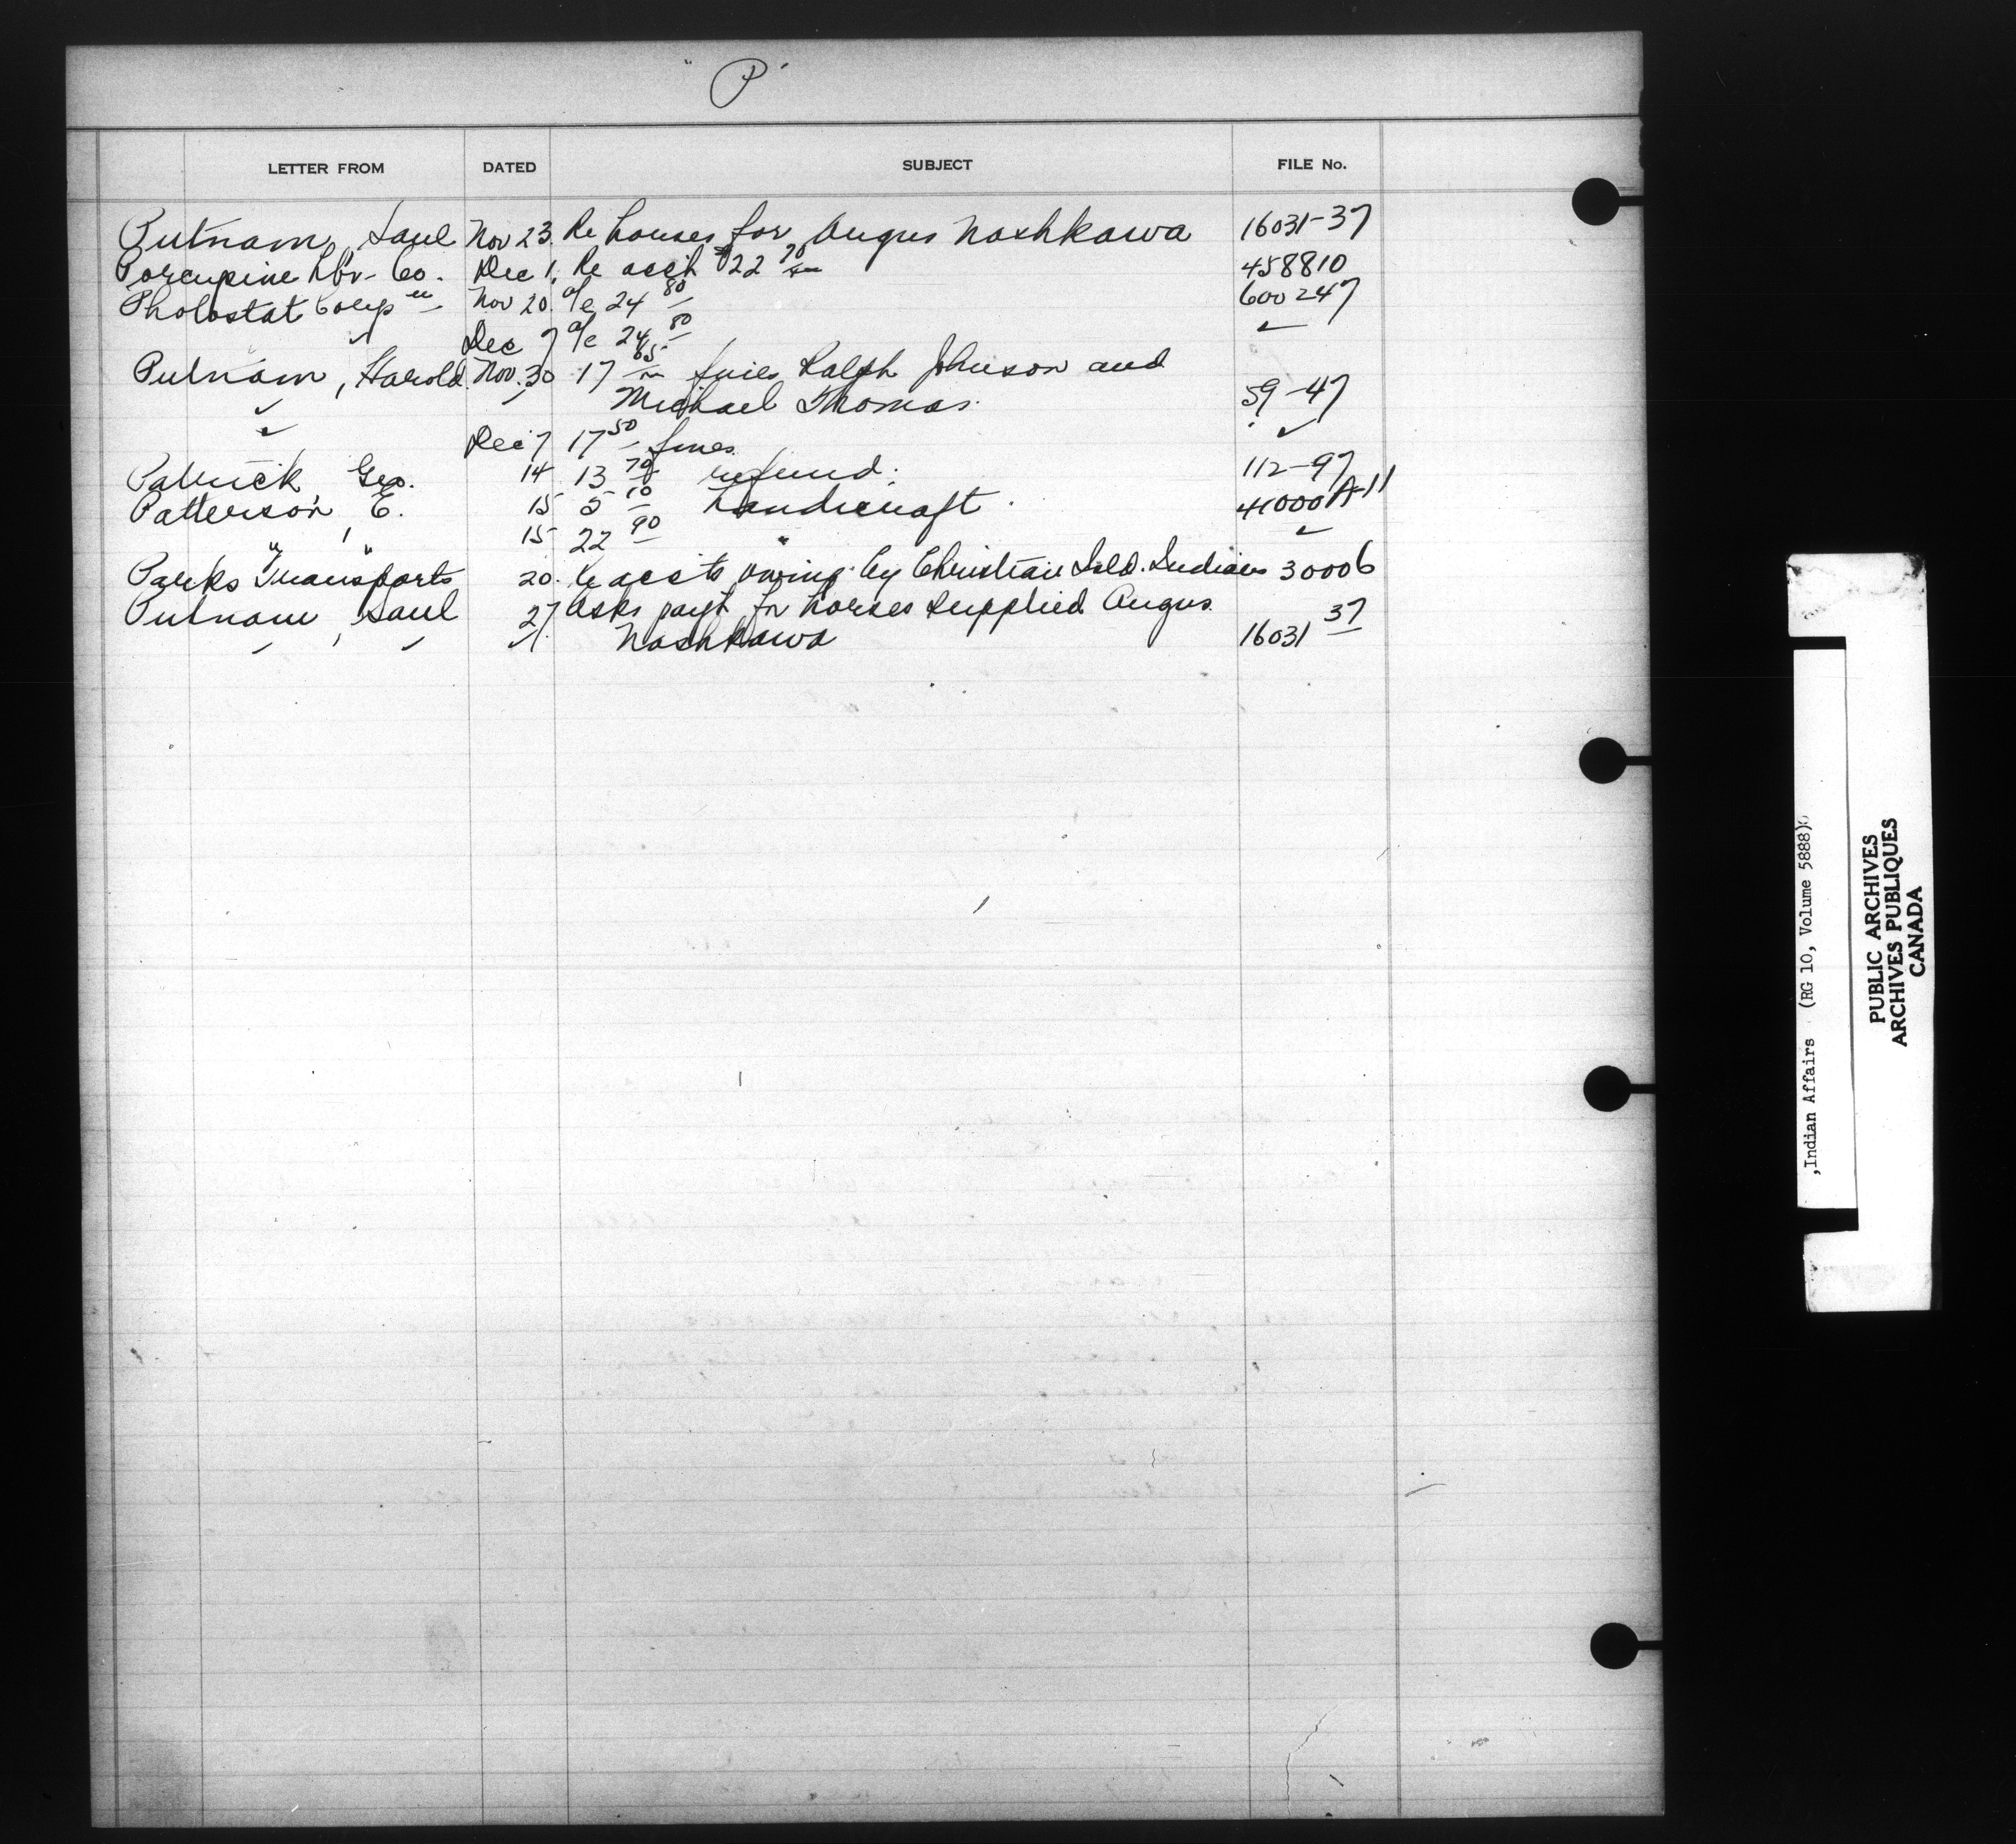 "P"
LETTER FROM DATED SUBJECT FILE No.
Putnam, Saul Nov 23. Re horses for Angus Noshkawa 16031-37
Porcupine Lbr. Co. Dec 1. Re acct $22 70 458810
Photostat Corp Nov 20. a/c 24 80 600247
" Dec 7 a/c 24 80 ✓
Putnam, Harold Nov. 30 17 65 fines Ralph Johnson and
Michael Thomas. 59-47
✓ Dec 7 17 50 fines. ✓
Patrick Geo. 14 13 70 refund. 112-97
Patterson, E. 15 5 10 handicraft. 41000A-11
" 15 22 90 " ✓
Parks Transports 20. Re accts owing by Christian Isld. Indians 30006
Putnam, Saul 27 Asks payt for horses supplied Angus
Noshkawa 16031 37
,Indian Affairs (RG 10, Volume 5888)
PUBLIC ARCHIVES
ARCHIVES PUBLIQUES
CANADA